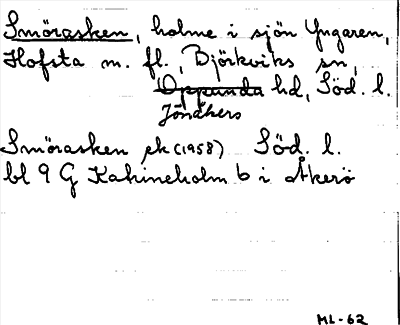 Smörasken, holme i sjön Yngaren,
Hofsta m. fl., Björkviks sn,
Oppunda hd, Söd. l.
Jönåkers
Smörasken ek (1958) Söd. l.
bl 9 G Katrineholm b i Åkerö
ML-62